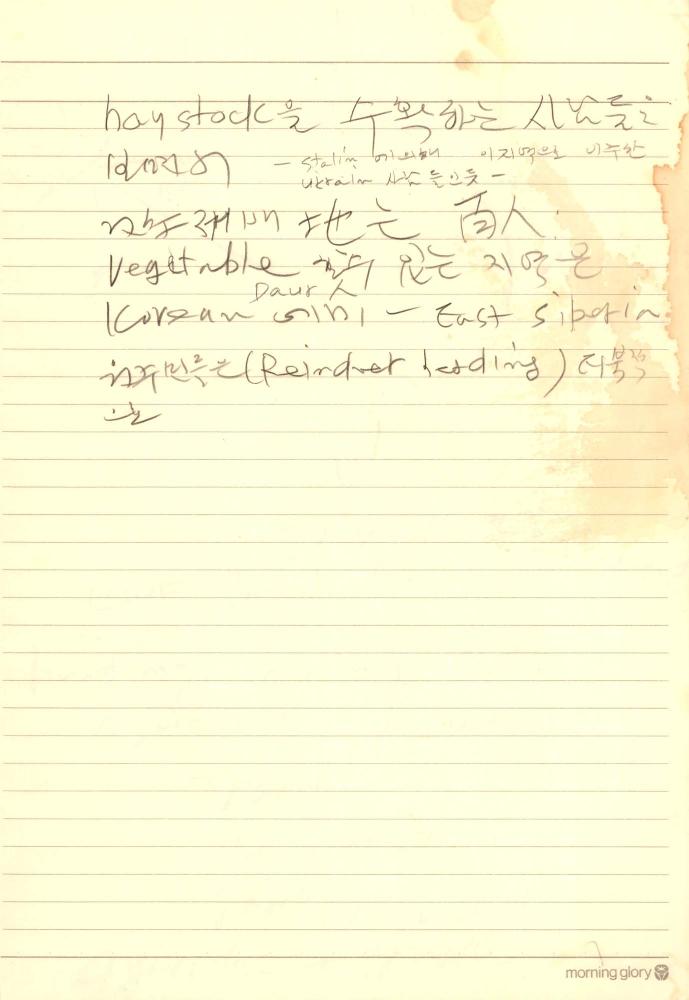 hay stock을 수확하는 사람들은
- stalin 에 의해 이 지역으로 이주한
ukrain 사람들인듯 -
地는 商人
vegetable 있는 지역은
Daur 人
Korean 이다 - East siberia
원주민들은 (Reindeer herding) 더 북쪽
으로
morning glory